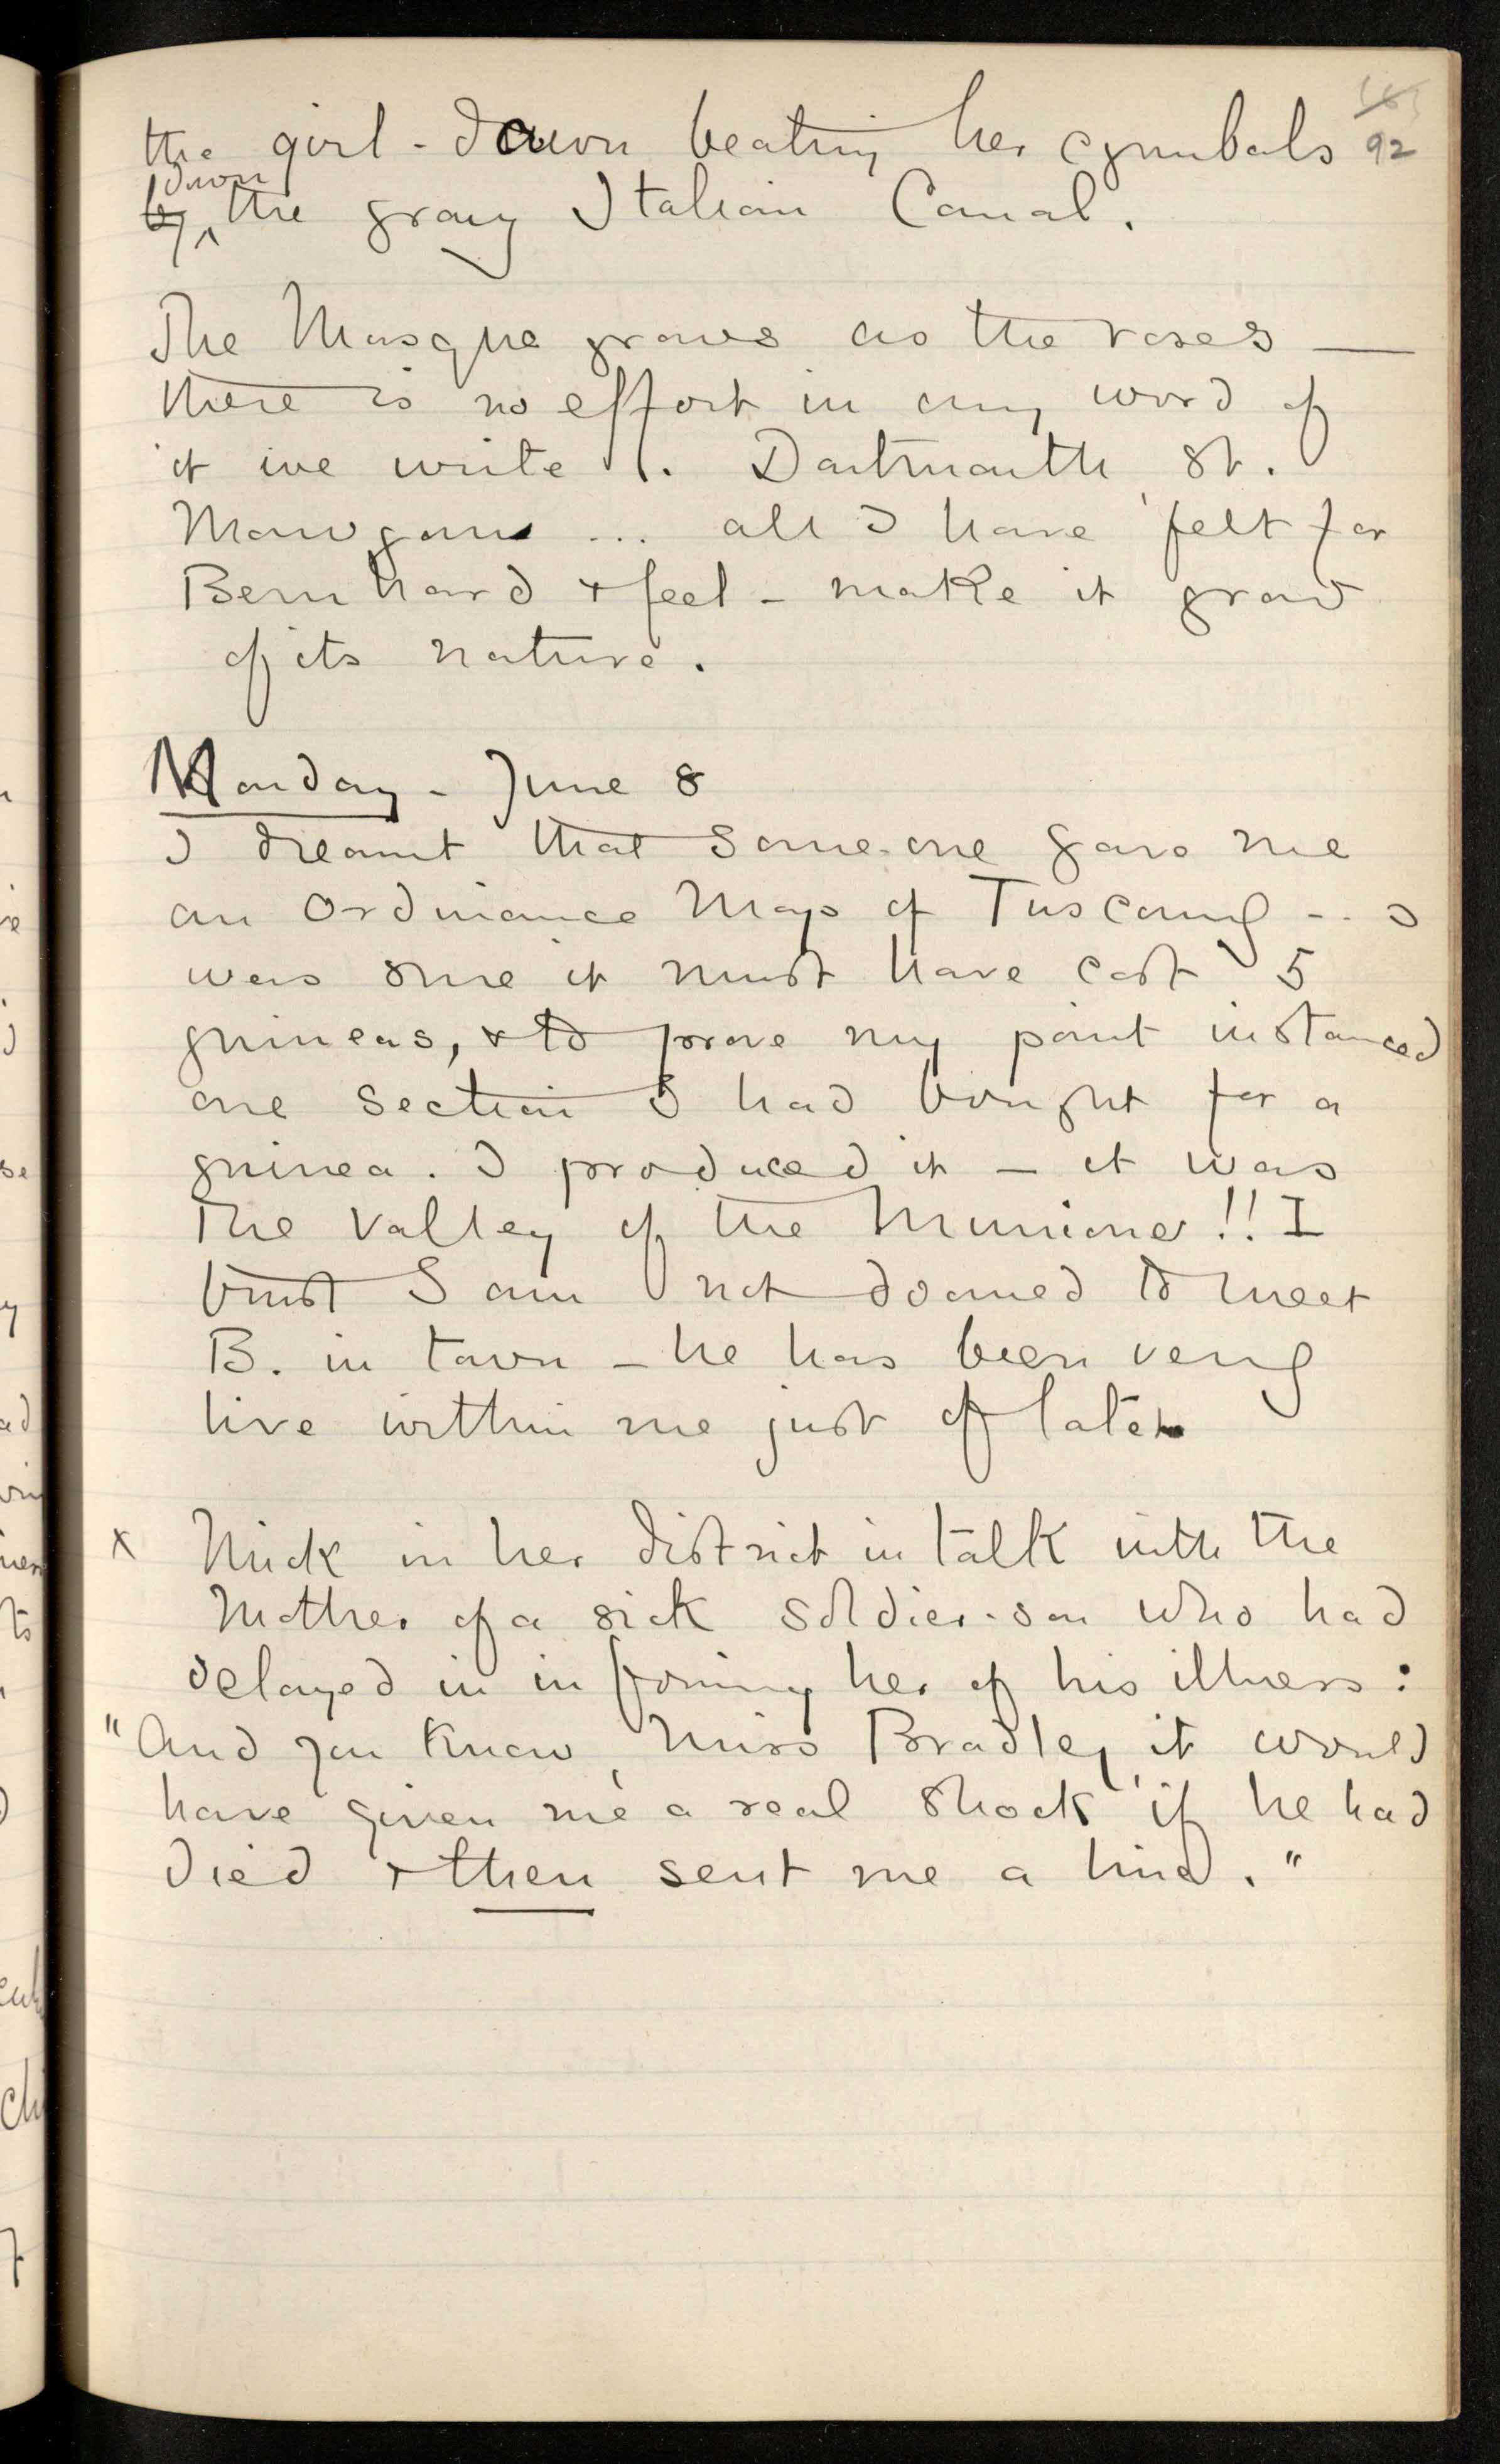 the girl-dawn beating her cymbals 92
down
by the gray Italian Canal.
The Masque grows as the roses —
there is no effort in any word of
it we write. Dartmouth, St.
Mawgans ... all I have felt for
Bernhard & feel - make it grow
of its nature.
Monday - June 8
I dreamt that some-one gave me
an Ordinance Map of Tuscany - .. I
was sure it must have cost 5
guineas, & to prove my point instanced
one section I had bought for a
guinea. I produced it - it was
The Valley of the Munione!! I
trust I am not doomed to meet
B. in town - he has been very
live within me just of late.
x Mick in her district in talk with the
Mother of a sick soldier-son who had
delayed in informing her of his illness:
"And you know, Miss Bradley, it would
have given me a real shock if he had
died & then sent me a line."